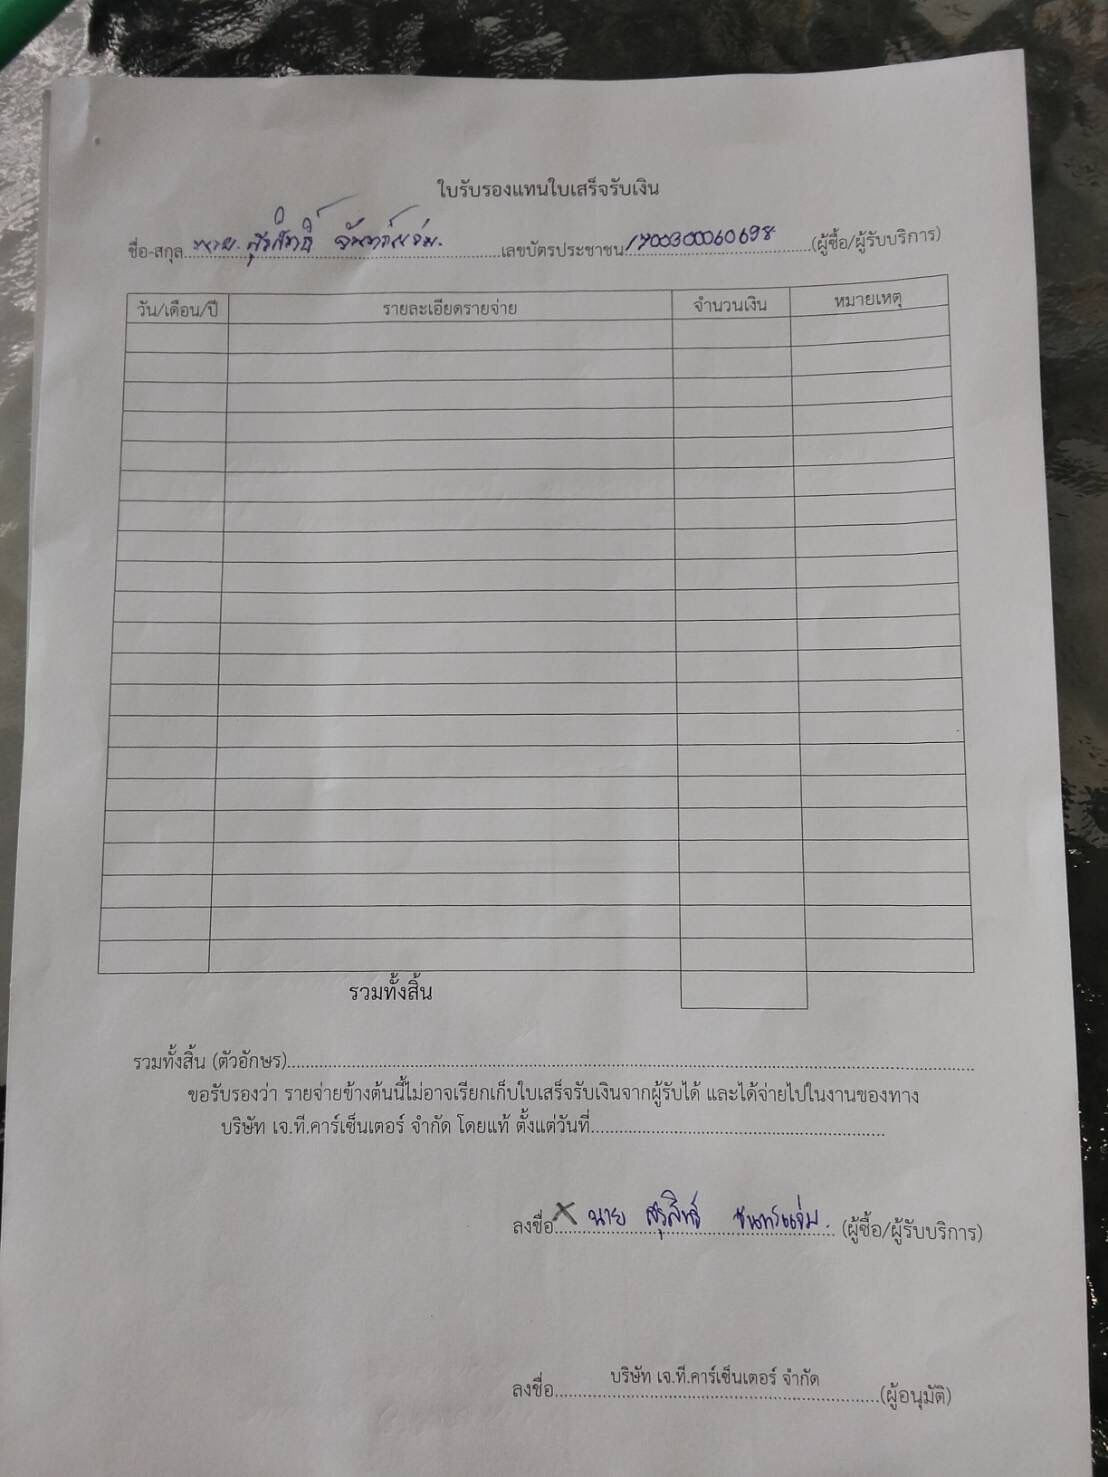 ใบรับรองแทนใบเสร็จรับเงิน
ชื่อ-สกุล นาย สุรสิทธิ์ จันทร์แจ่ม เลขบัตรประชาชน 1700300060698 (ผู้ซื้อ/ผู้รับบริการ)
วัน/เดือน/ปี รายละเอียดรายจ่าย จำนวนเงิน หมายเหตุ
รวมทั้งสิ้น
รวมทั้งสิ้น (ตัวอักษร)
ขอรับรองว่า รายจ่ายข้างต้นนี้ไม่อาจเรียกเก็บใบเสร็จรับเงินจากผู้รับได้ และได้จ่ายไปในงานของทาง
บริษัท เจ.ที.คาร์เซ็นเตอร์ จำกัด โดยแท้ ตั้งแต่วันที่
ลงชื่อ X นาย สุรสิทธิ์ จันทร์แจ่ม. (ผู้ซื้อ/ผู้รับบริการ)
บริษัท เจ.ที.คาร์เซ็นเตอร์ จำกัด
ลงชื่อ (ผู้อนุมัติ)